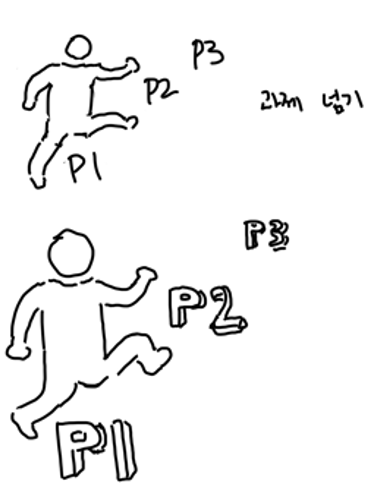 P3
P2
과제 넘기
P1
P3
P2
P1